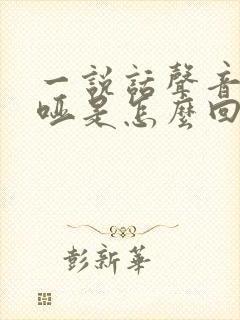 一説話聲音
啞是怎麼回
彭新華